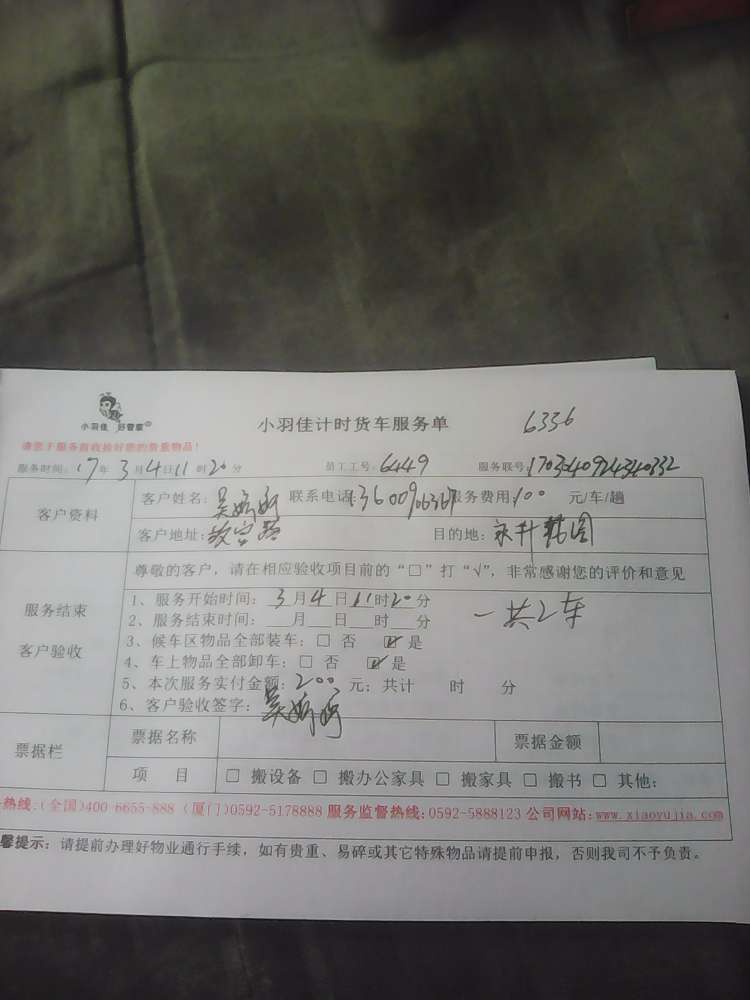 小羽佳 好管家
小羽佳计时货车服务单 6336
请您于服务前收捡好您的贵重物品!
服务时间: 17年3月4日11时20分 员工工号: 6449 服务联号:
客户资料
客户姓名: 吴 联系电话: 服务费用: 100 元/车/趟
客户地址: 故宫路 目的地: 永升
尊敬的客户，请在相应验收项目前的“□”打“√”，非常感谢您的评价和意见
服务结束
客户验收
1、服务开始时间: 3月4日11时20分
2、服务结束时间: 月 日 时 分
一共2车
3、候车区物品全部装车: □ 否 ☑ 是
4、车上物品全部卸车: □ 否 ☑ 是
5、本次服务实付金额: 200 元; 共计 时 分
6、客户验收签字: 吴
票据栏
票据名称 票据金额
项 目 □ 搬设备 □ 搬办公家具 □ 搬家具 □ 搬书 □ 其他:
热线:(全国)400 6655-888 (厦门)0592-5178888 服务监督热线:0592-5888123 公司网站:www.xiaoyujia.com
馨提示: 请提前办理好物业通行手续，如有贵重、易碎或其它特殊物品请提前申报，否则我司不予负责。